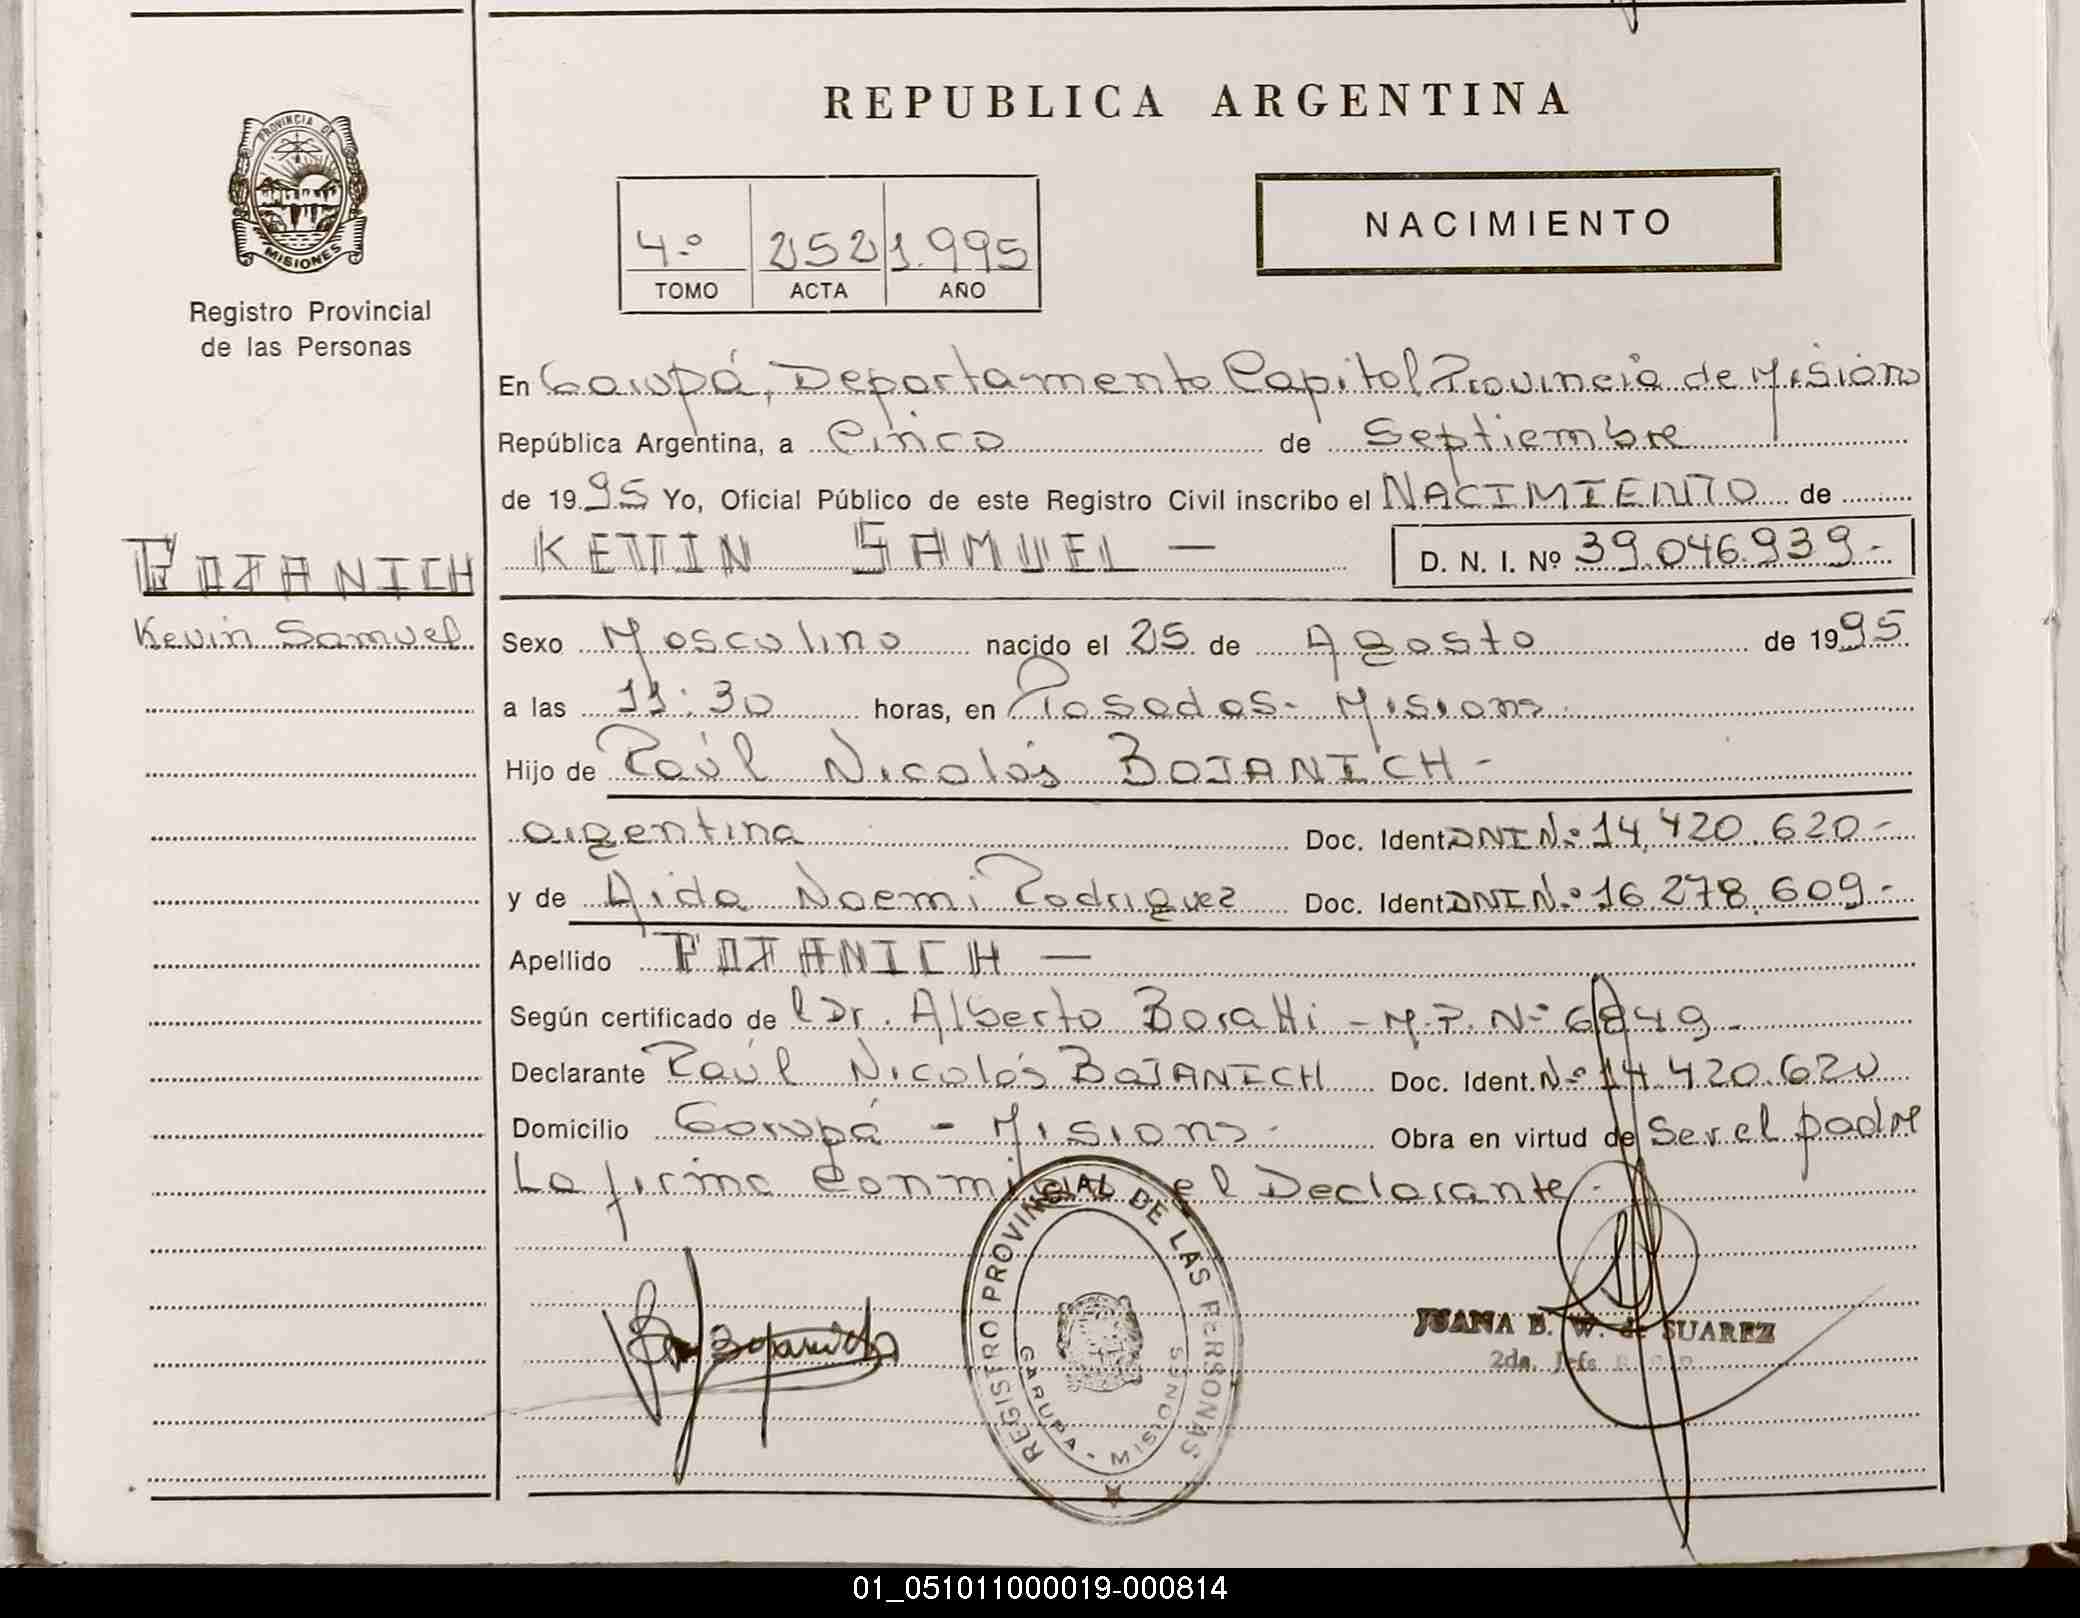 REPUBLICA ARGENTINA
PROVINCIA DE
MISIONES
Registro Provincial
de las Personas
NACIMIENTO
4.º 252 1.995
TOMO ACTA AÑO
En Garupá, Departamento Capital Provincia de Misiones
República Argentina, a Cinco de Septiembre
de 1995 Yo, Oficial Público de este Registro Civil inscribo el NACIMIENTO de
KEVIN SAMUEL — D. N. I. Nº 39.046.939-
BOJANICH
Kevin Samuel
Sexo Masculino nacido el 25 de Agosto de 1995
a las 11:30 horas, en Posadas- Misiones
Hijo de Raúl Nicolás BOJANICH-
argentina Doc. Ident. DNI N.º 14.420.620-
y de Aida Noemi Rodriguez Doc. Ident. DNI N.º 16.278.609-
Apellido BOJANICH —
Según certificado del Dr. Alberto Boratti - M.P. Nº 6849-
Declarante Raúl Nicolás BOJANICH Doc. Ident. Nº 14.420.620
Domicilio Garupá - Misiones- Obra en virtud de Ser el padre
La firma Conmigo el Declarante-
REGISTRO PROVINCIAL DE LAS PERSONAS
GARUPA - MISIONES
Bojanich
JUANA B. W. de SUAREZ
2da. Jefe
01_051011000019-000814